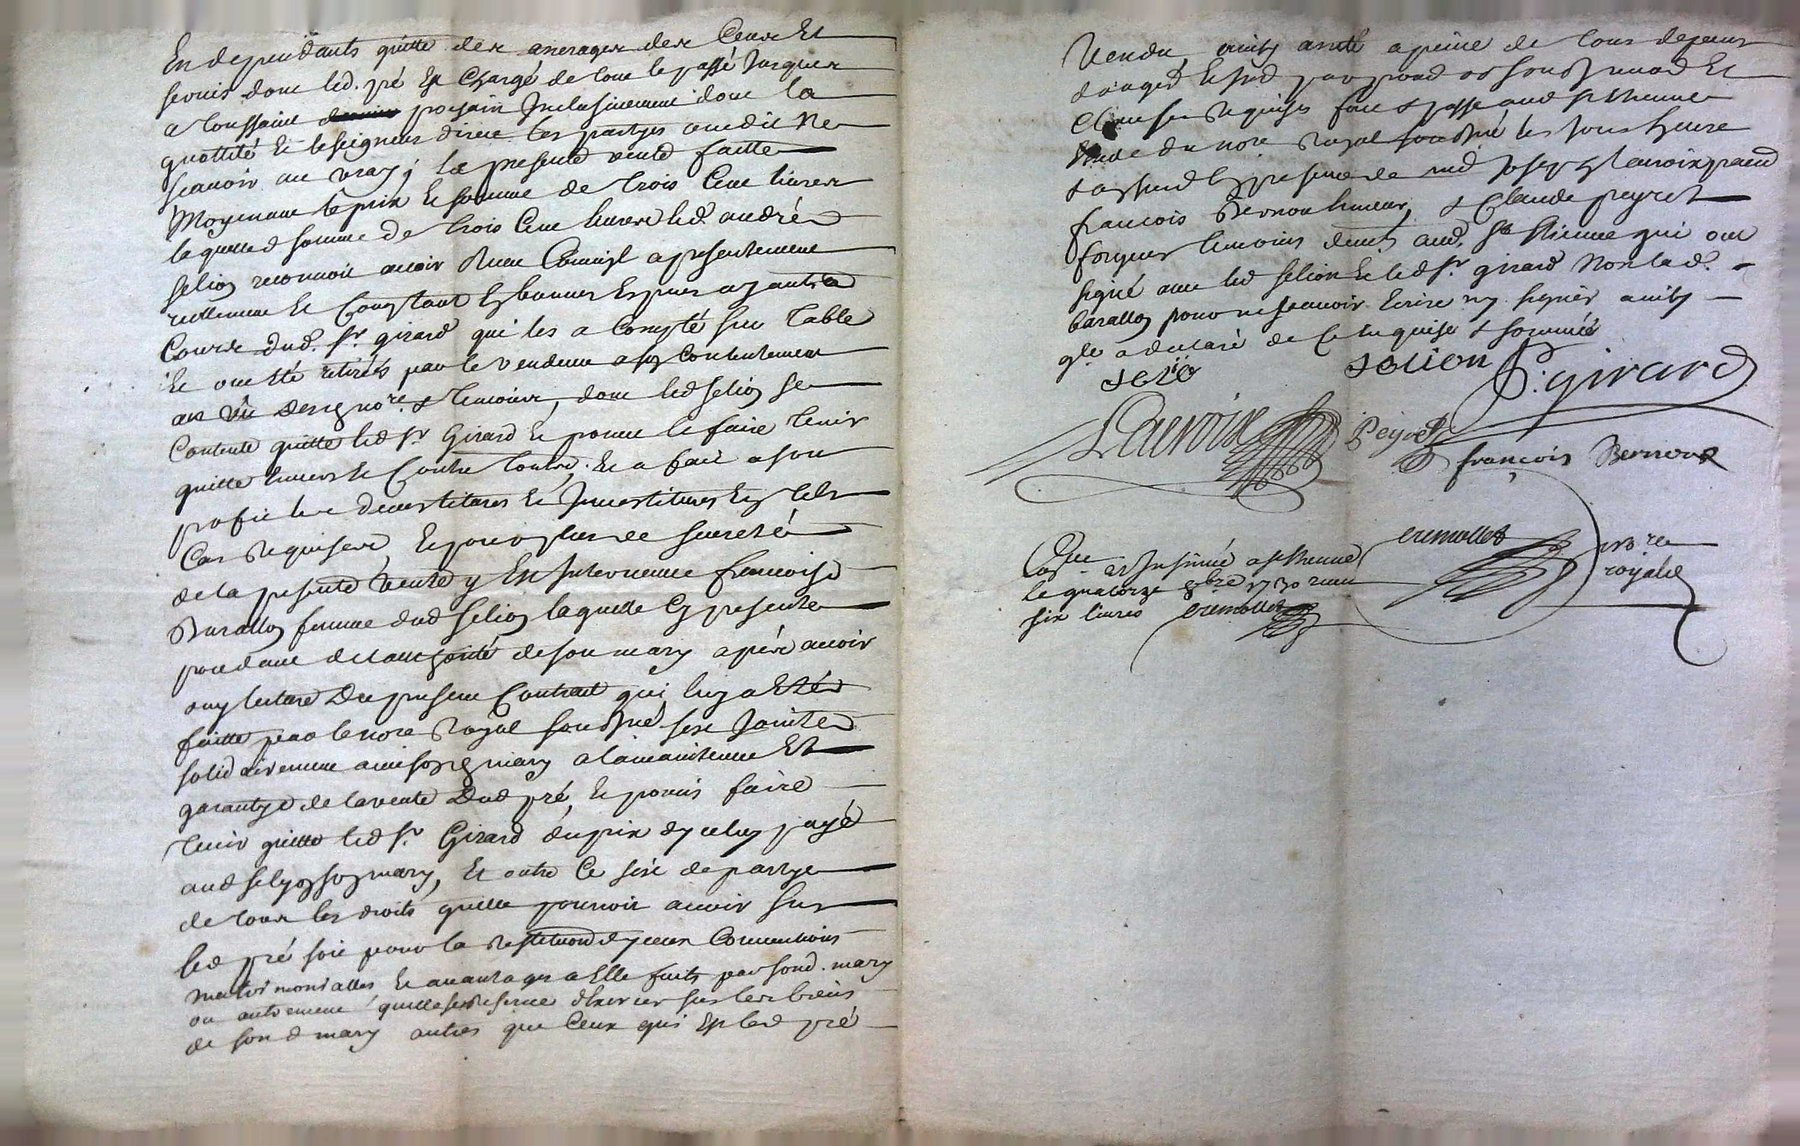 En dependants quitte des arrerages des Cens Et
servis dont led. pré Est Chargé de tout le passé Jusques
a toussaint prochain Inclusivement dont la
quottité Et le seigneur direct les partyes ont dit ne
scavoir au vray ; La presente vente faitte
Moyenant le prix Et somme de trois Cent livres
laquelle somme de trois Cent livres led. andré
selion reconnoit avoir Receu Comme apresentement
reellement Et Comptant En bonnes Especes ayants
Cours dud. Sr. girard qui les a Compté sur table
Et ont Eté retirés par le vendeur a son Contentement
au vû desd. nore. & temoins, dont led selion se
Contente quitte led Sr Girard Et promet le faire tenir
quitte Envers Et Contre touts. Et a fait a son
profit les devestitures Et Investitures En tels
Cas Requises, Et pour plus de sureté
de la presente vente y Est Intervenue francoise
Barallon femme dud selion laquelle En presente
procedant de l'authorité de son mary apres avoir
ouy lecture Du present Contract qui luy a Eté
faitte par le nore Royal soussigné s'est Jointe
solidairement avec son mary a la maintenue Et
garantye de la vente Dud pré, Et promis faire
tenir quitte led Sr. Girard du prix d'yceluy payé
aud selion son mary, Et outre Ce s'est departye
de tous les droits qu'elle pouvoit avoir sur
led pré soit pour la Restitution d'yceux Conventions
matrimonialles Et avantages a Elle faits par sond. mary
ou autrement qu'elle se Reserve d'Exercer sur les biens
de sond mary autres que Ceux qui Est led pré
Vendu, ainsy arreté a peine de tous depens
domages Et
Clauses Requises fait & passé aud St Etienne
Etude du nore Royal soussigné les Jours heure
& an susd En presence de md Joseph Lacroix praticien
francois Bernou, & Claude peyret
forgeur temoins dud. St Etienne qui ont
signé avec led selion Et led Sr. girard Non lad.
barallon pour ne scavoir Ecrire ny signer ainsy
qle a declaré de Ce Enquise & sommée
selion P. girard
Lacroix Peyret
françois Bernou
Cremollet
nore
royal
Controllé Et Insinué a St Etienne
le quatorze 8bre 1730 recu
six livres Cremollet